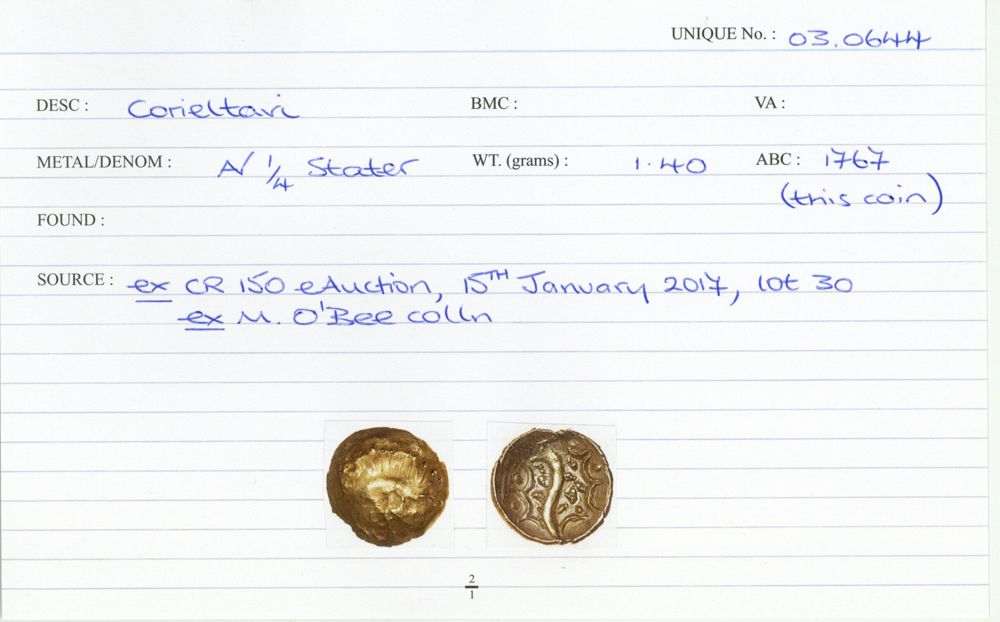 UNIQUE No. : 03.0644
DESC : Corieltavi BMC : VA :
METAL/DENOM : A/ 1/4 Stater WT. (grams) : 1.40 ABC : 1767
(this coin)
FOUND :
SOURCE : ex CR 150 eAuction, 15TH January 2017, lot 30
ex M. O'Bee colln
2/1